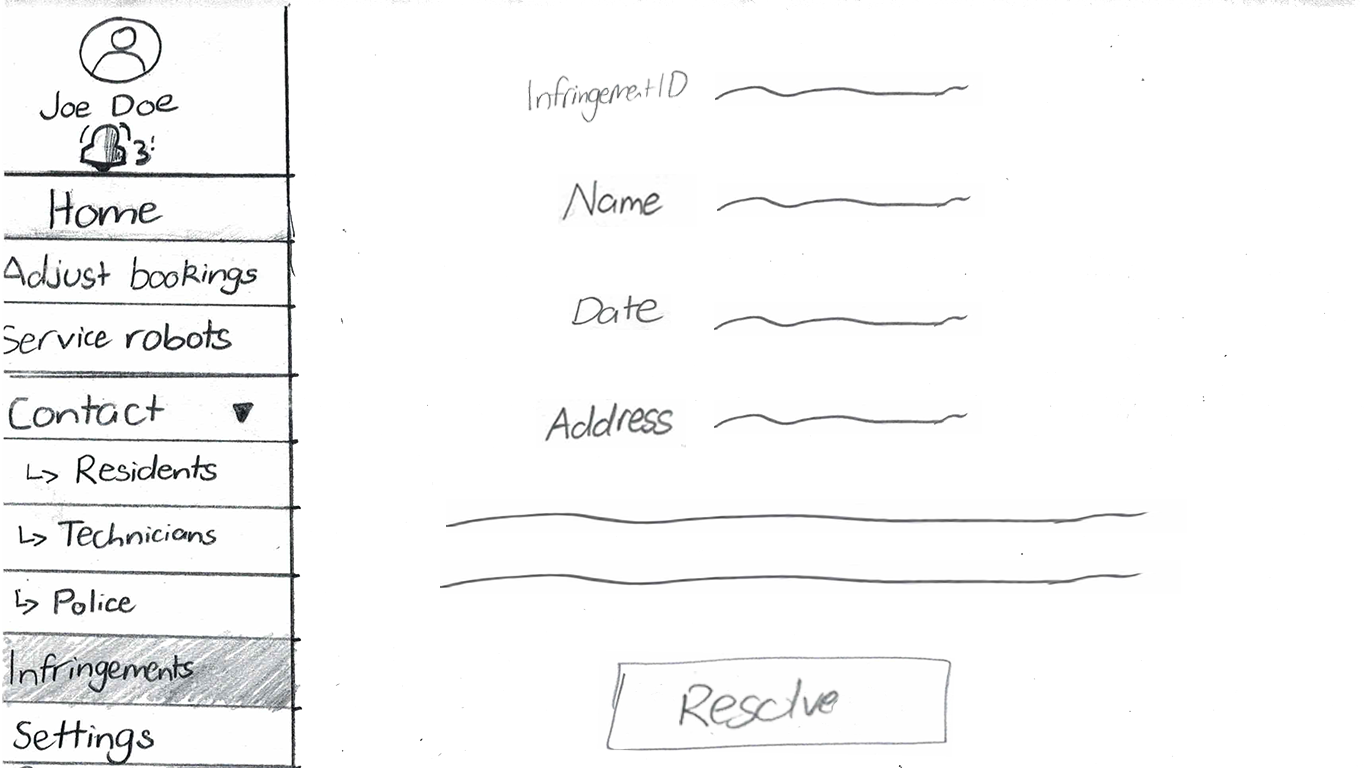 Joe Doe
3
Home
Adjust bookings
Service robots
Contact
Residents
Technicians
Police
Infringements
Settings
InfringementID
Name
Date
Address
Resolve